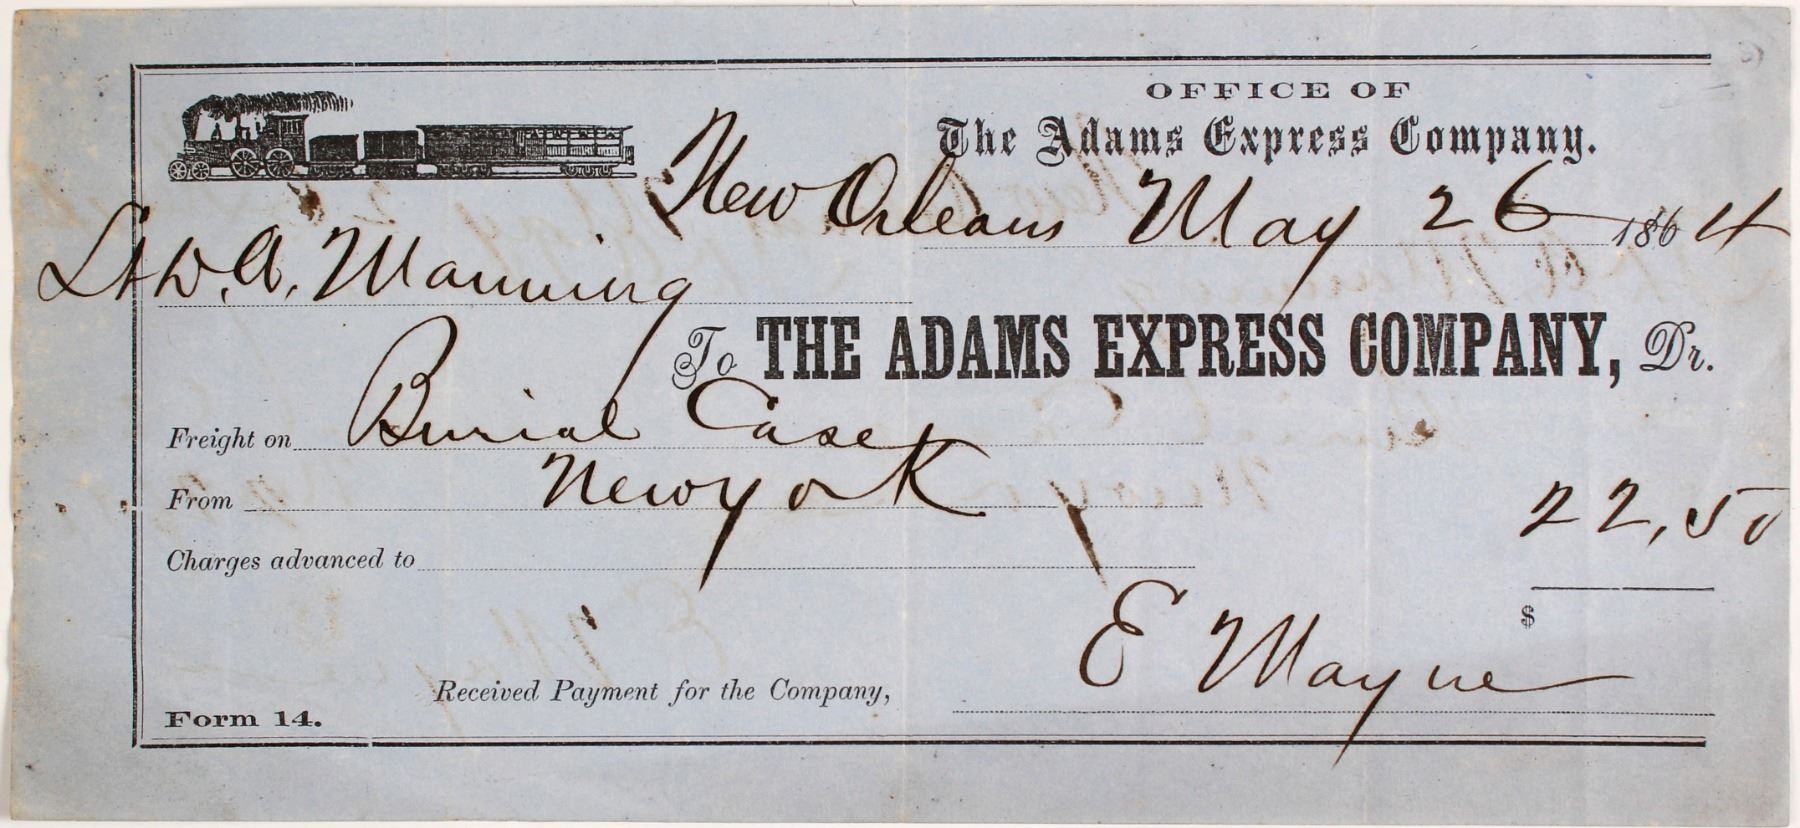 OFFICE OF
The Adams Express Company.
New Orleans May 26 1864
Lt W. A. Manning
To THE ADAMS EXPRESS COMPANY, Dr.
Freight on Burial Case
From New york 22,50
Charges advanced to
$
Received Payment for the Company, E Mayne
Form 14.